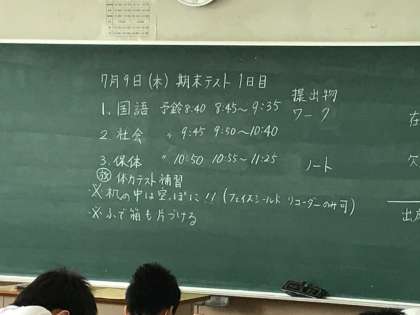 7月9日(木) 期末テスト 1日目
提出物
1. 国語 予鈴 8:40 8:45～9:35 ワーク
2. 社会 〃 9:45 9:50～10:40
3. 保体 〃 10:50 10:55～11:25 ノート
放 体力テスト補習
※机の中は空っぽに!! (フェイスシールド リコーダーのみ可)
※ふで箱も片づける
在
欠
出席